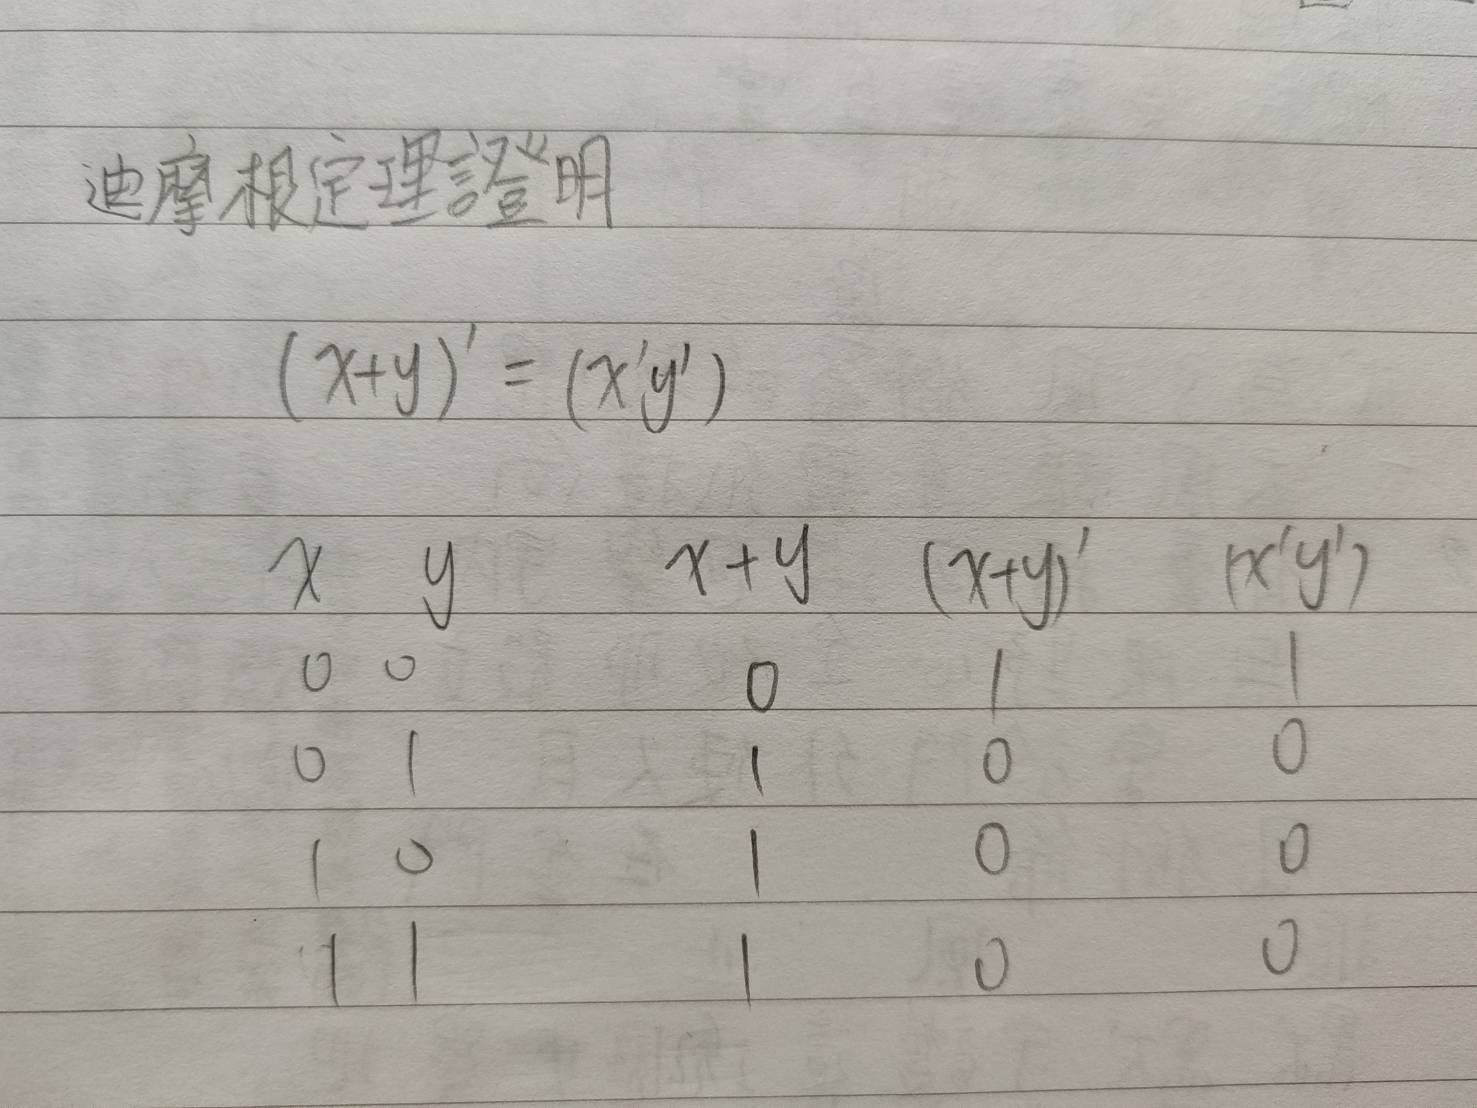 迪摩根定理證明
(x+y)' = (x'y')
x y x+y (x+y)' (x'y')
0 0 0 1 1
0 1 1 0 0
1 0 1 0 0
1 1 1 0 0